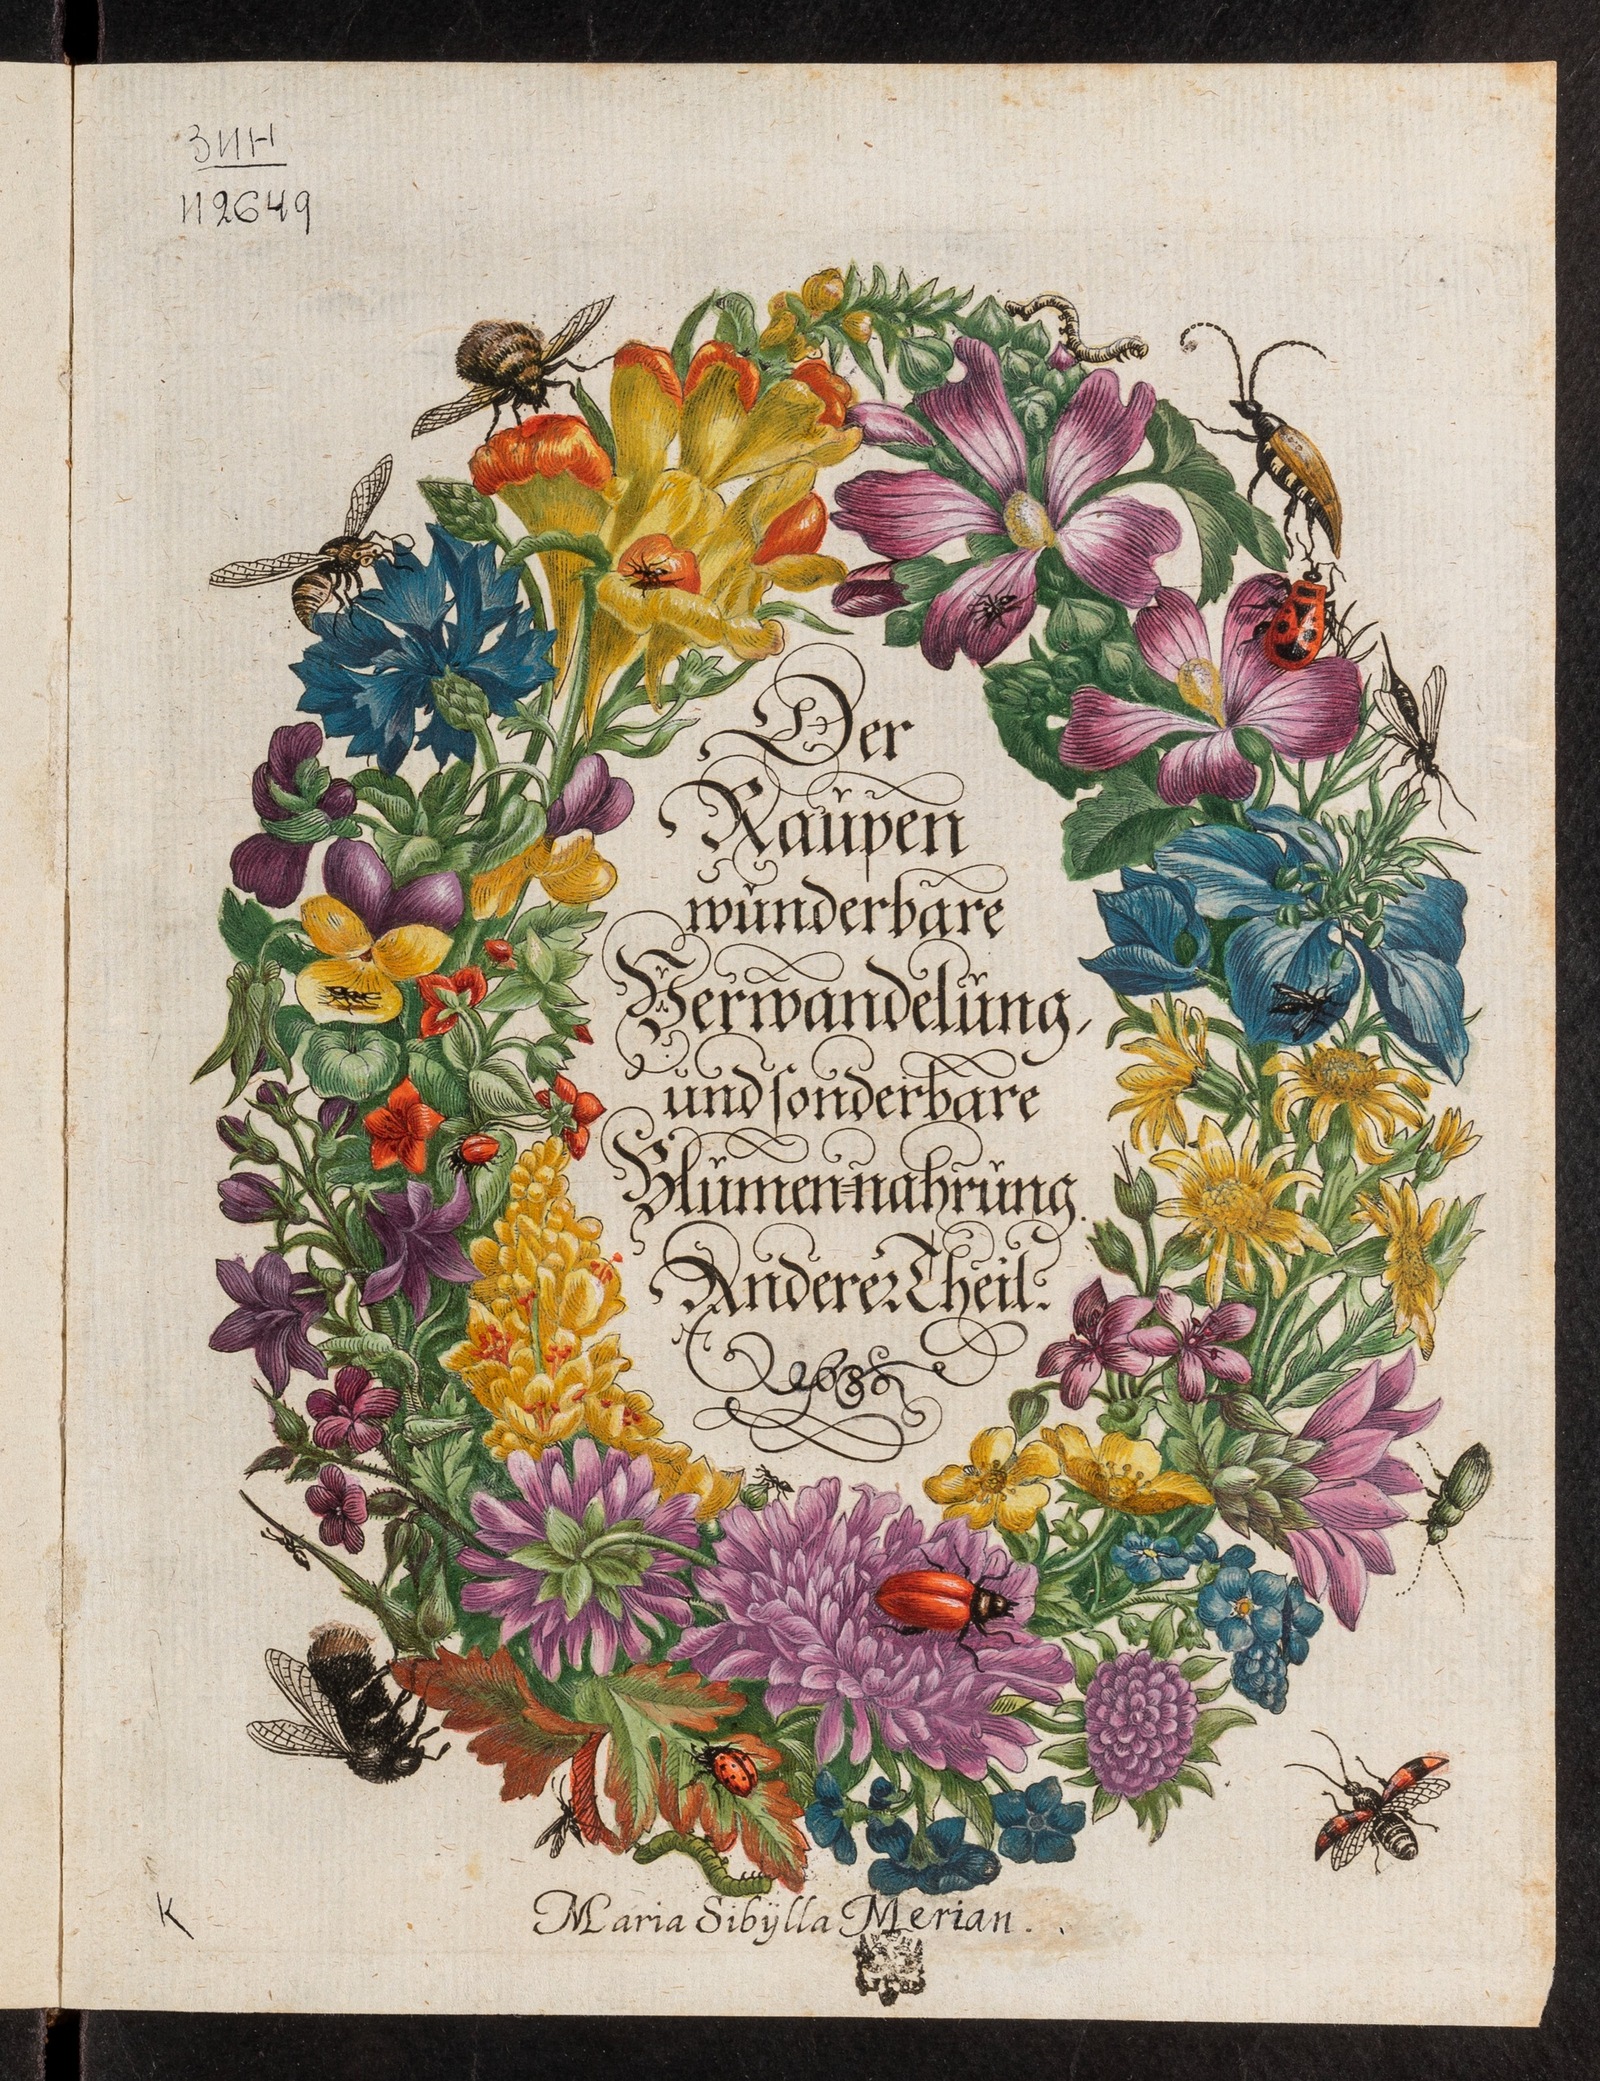 ЗИН
И2649
Der
Raupen
wunderbare
Verwandelung,
und sonderbare
Blumen=nahrung.
Anderer Theil.
Maria Sibÿlla Merian.
K